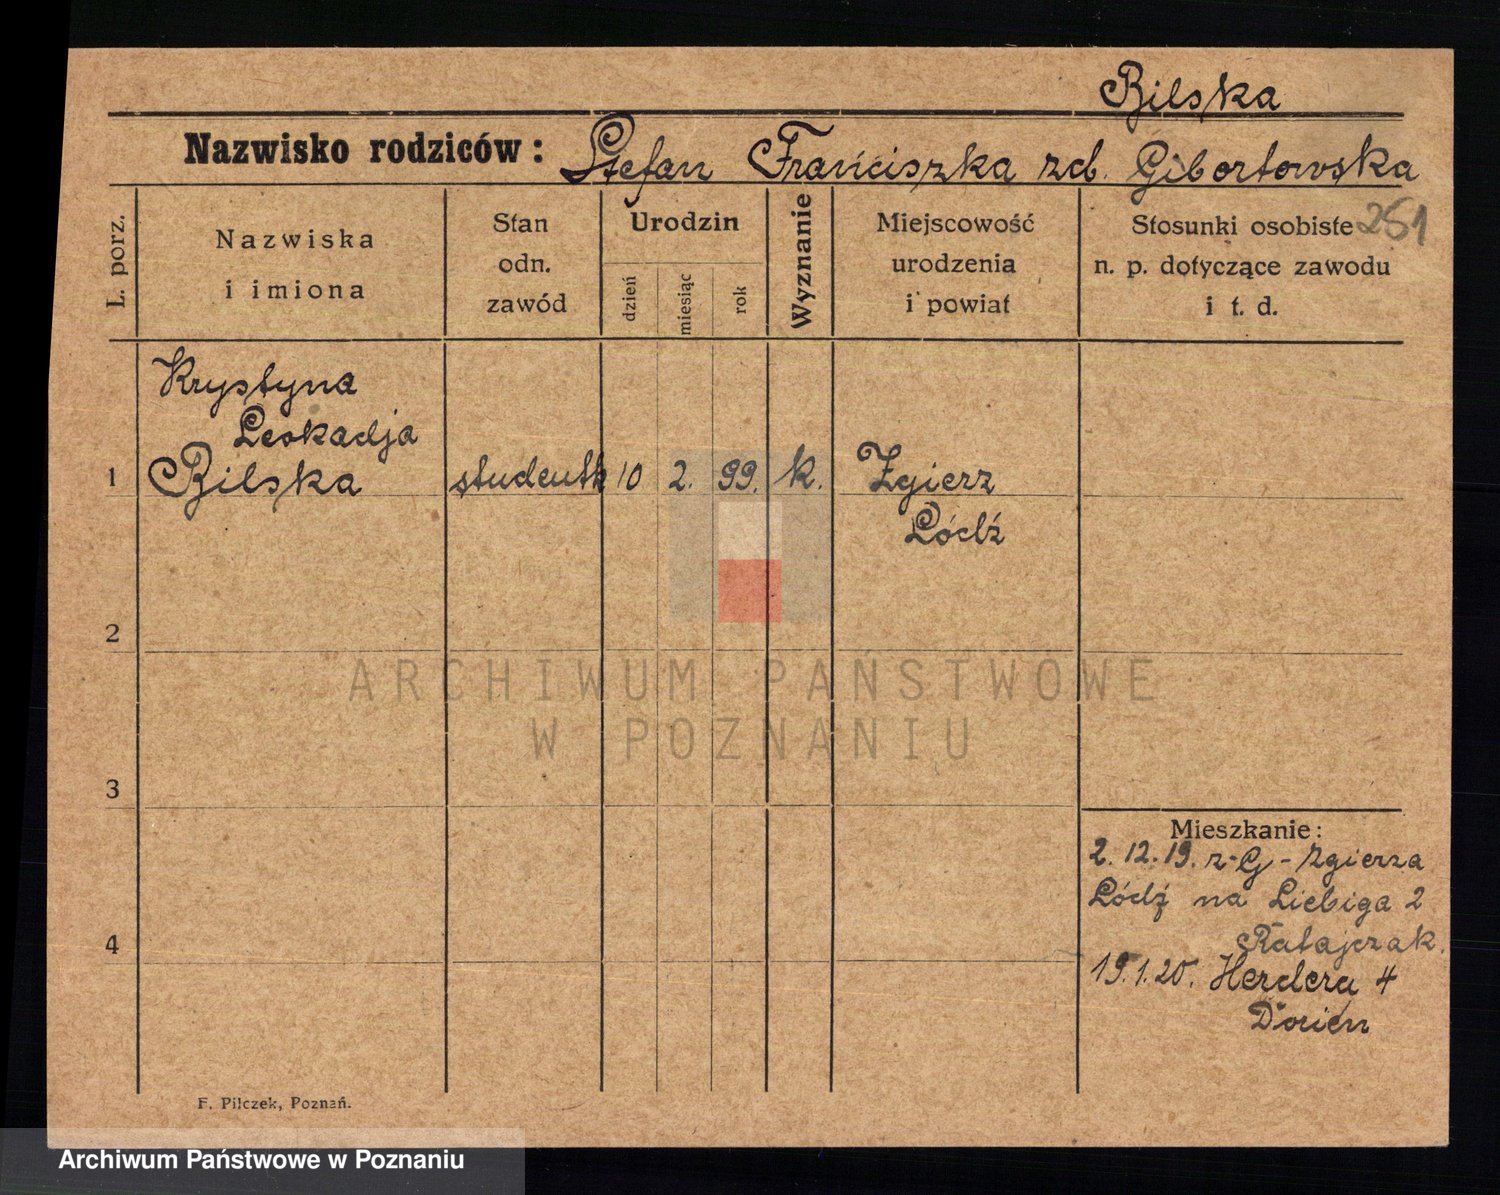 Bilska
Nazwisko rodziców: Stefan Franciszka zd. Gibertowska
L. porz.
Nazwiska
i imiona
Stan
odn.
zawód
Urodzin
dzień
miesiąc
rok
Wyznanie
Miejscowość
urodzenia
i powiat
Stosunki osobiste 251
n. p. dotyczące zawodu
i t. d.
Krystyna
Leokadja
1 Bilska studentk 10 2. 99. k. Zgierz
Łódź
2
ARCHIWUM PAŃSTWOWE
W POZNANIU
3
Mieszkanie:
2. 12. 19. z G - Zgierza
Łódź na Liebiga 2
Ratajczak.
4
19.1.20. Herdera 4
Dorien
F. Pilczek, Poznań.
Archiwum Państwowe w Poznaniu